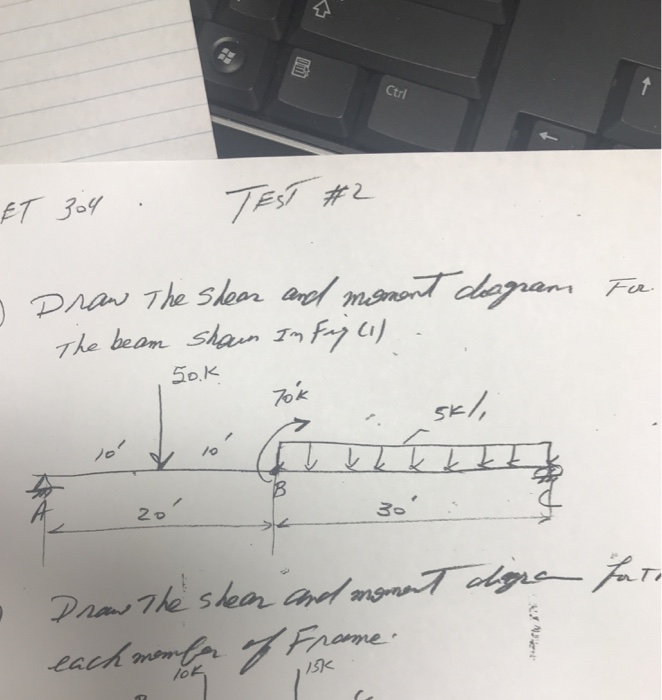 Ctrl
ET 304 . TEST #2
) Draw The shear and moment diagram For
The beam shown In Fig (1) .
50.K
70'K
5K/,
10' 10'
B
A
C
20' 30'
Draw The shear and moment digra for T
each member of Frame.
10K 15K